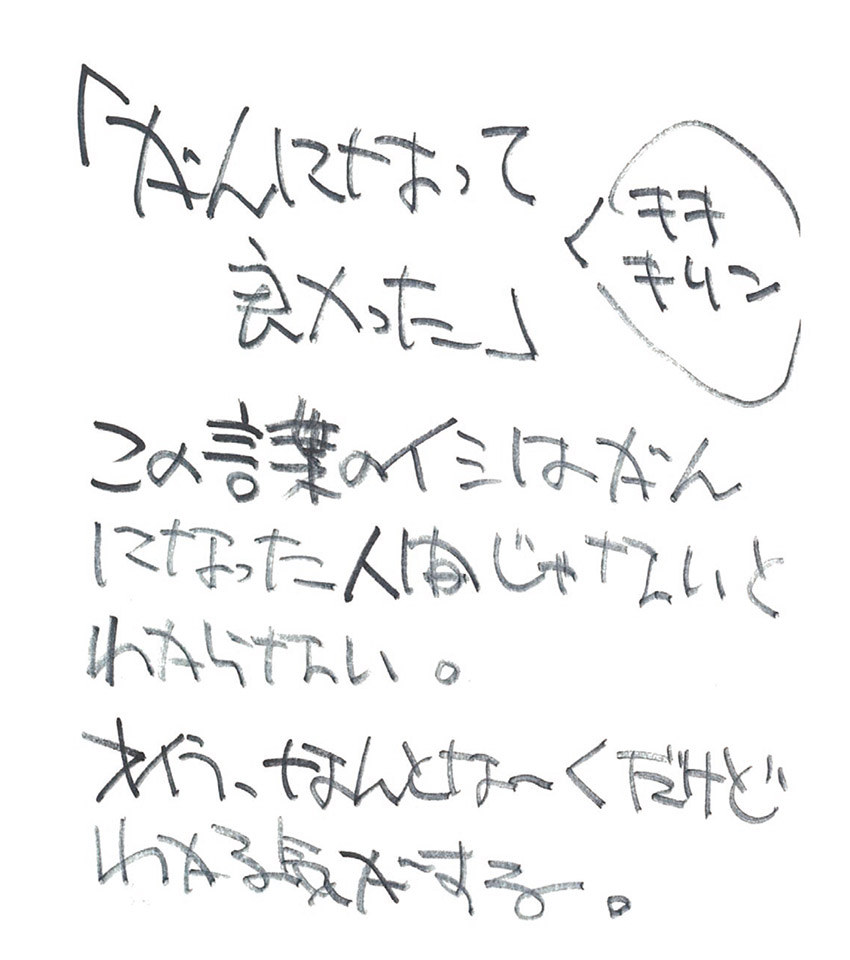 「がんになって
良かった」
キキ
キリン
この言葉のイミはがん
になった人間じゃないと
わからない。
オイラ、なんとな〜くだけど
わかる気がする。